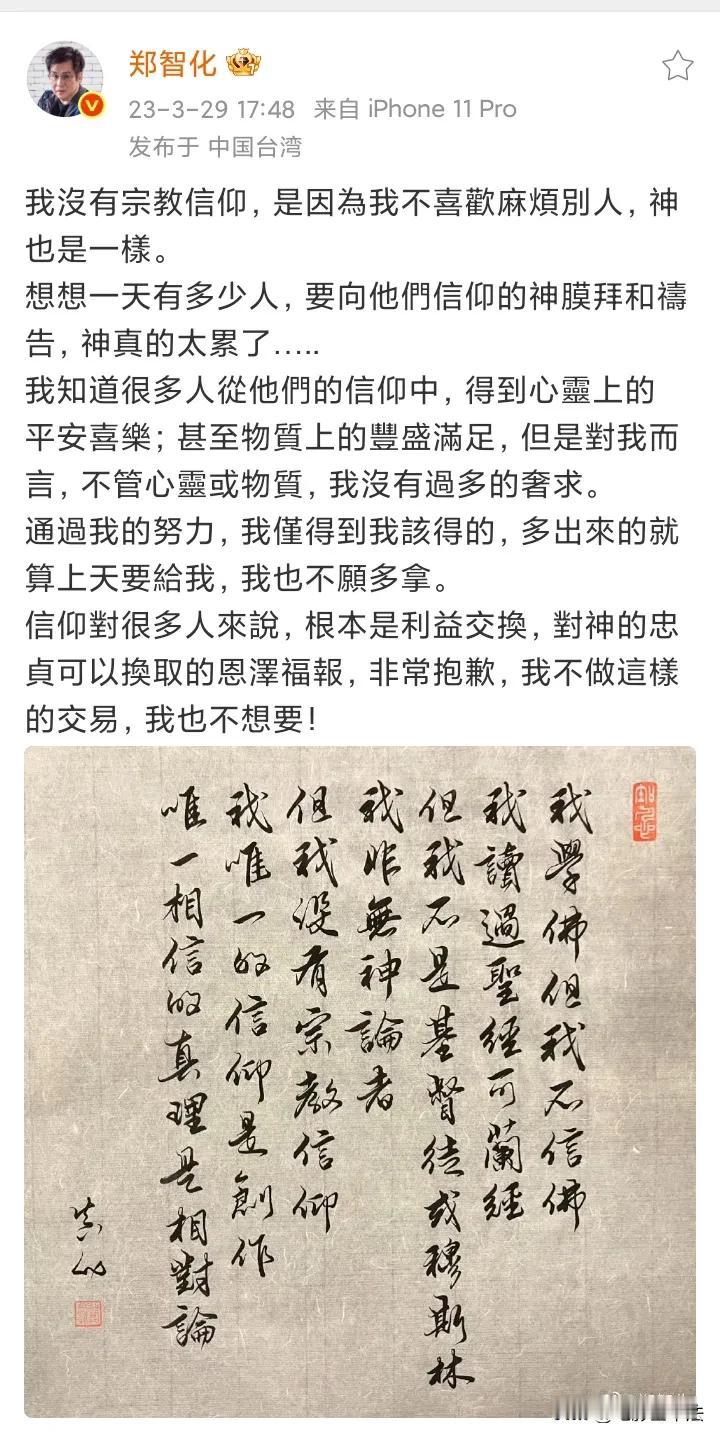 郑智化
23-3-29 17:48 来自 iPhone 11 Pro
发布于 中国台湾
我沒有宗教信仰，是因為我不喜歡麻煩別人，神
也是一樣。
想想一天有多少人，要向他們信仰的神膜拜和禱
告，神真的太累了…..
我知道很多人從他們的信仰中，得到心靈上的
平安喜樂；甚至物質上的豐盛滿足，但是對我而
言，不管心靈或物質，我沒有過多的奢求。
通過我的努力，我僅得到我該得的，多出來的就
算上天要給我，我也不願多拿。
信仰對很多人來說，根本是利益交換，對神的忠
貞可以換取的恩澤福報，非常抱歉，我不做這樣
的交易，我也不想要！
我學佛但我不信佛
我讀過聖經可蘭經
但我不是基督徒或穆斯林
我非無神論者
但我沒有宗教信仰
我唯一的信仰是創作
唯一相信的真理是相對論